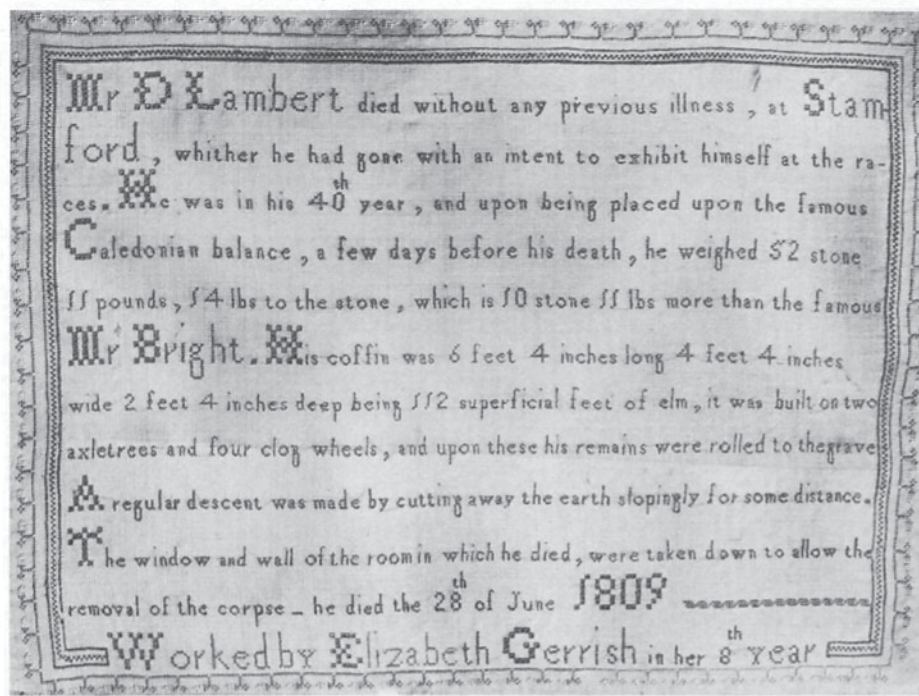 Mr D Lambert died without any previous illness, at Stam-
ford, whither he had gone with an intent to exhibit himself at the ra-
ces. He was in his 40th year, and upon being placed upon the famous
Caledonian balance, a few days before his death, he weighed 52 stone
11 pounds, 14 lbs to the stone, which is 10 stone 11 lbs more than the famous
Mr Bright. His coffin was 6 feet 4 inches long 4 feet 4 inches
wide 2 feet 4 inches deep being 112 superficial feet of elm, it was built on two
axletrees and four clog wheels, and upon these his remains were rolled to the grave
A regular descent was made by cutting away the earth slopingly for some distance.
The window and wall of the room in which he died, were taken down to allow the
removal of the corpse _ he died the 28th of June 1809
Worked by Elizabeth Gerrish in her 8th year